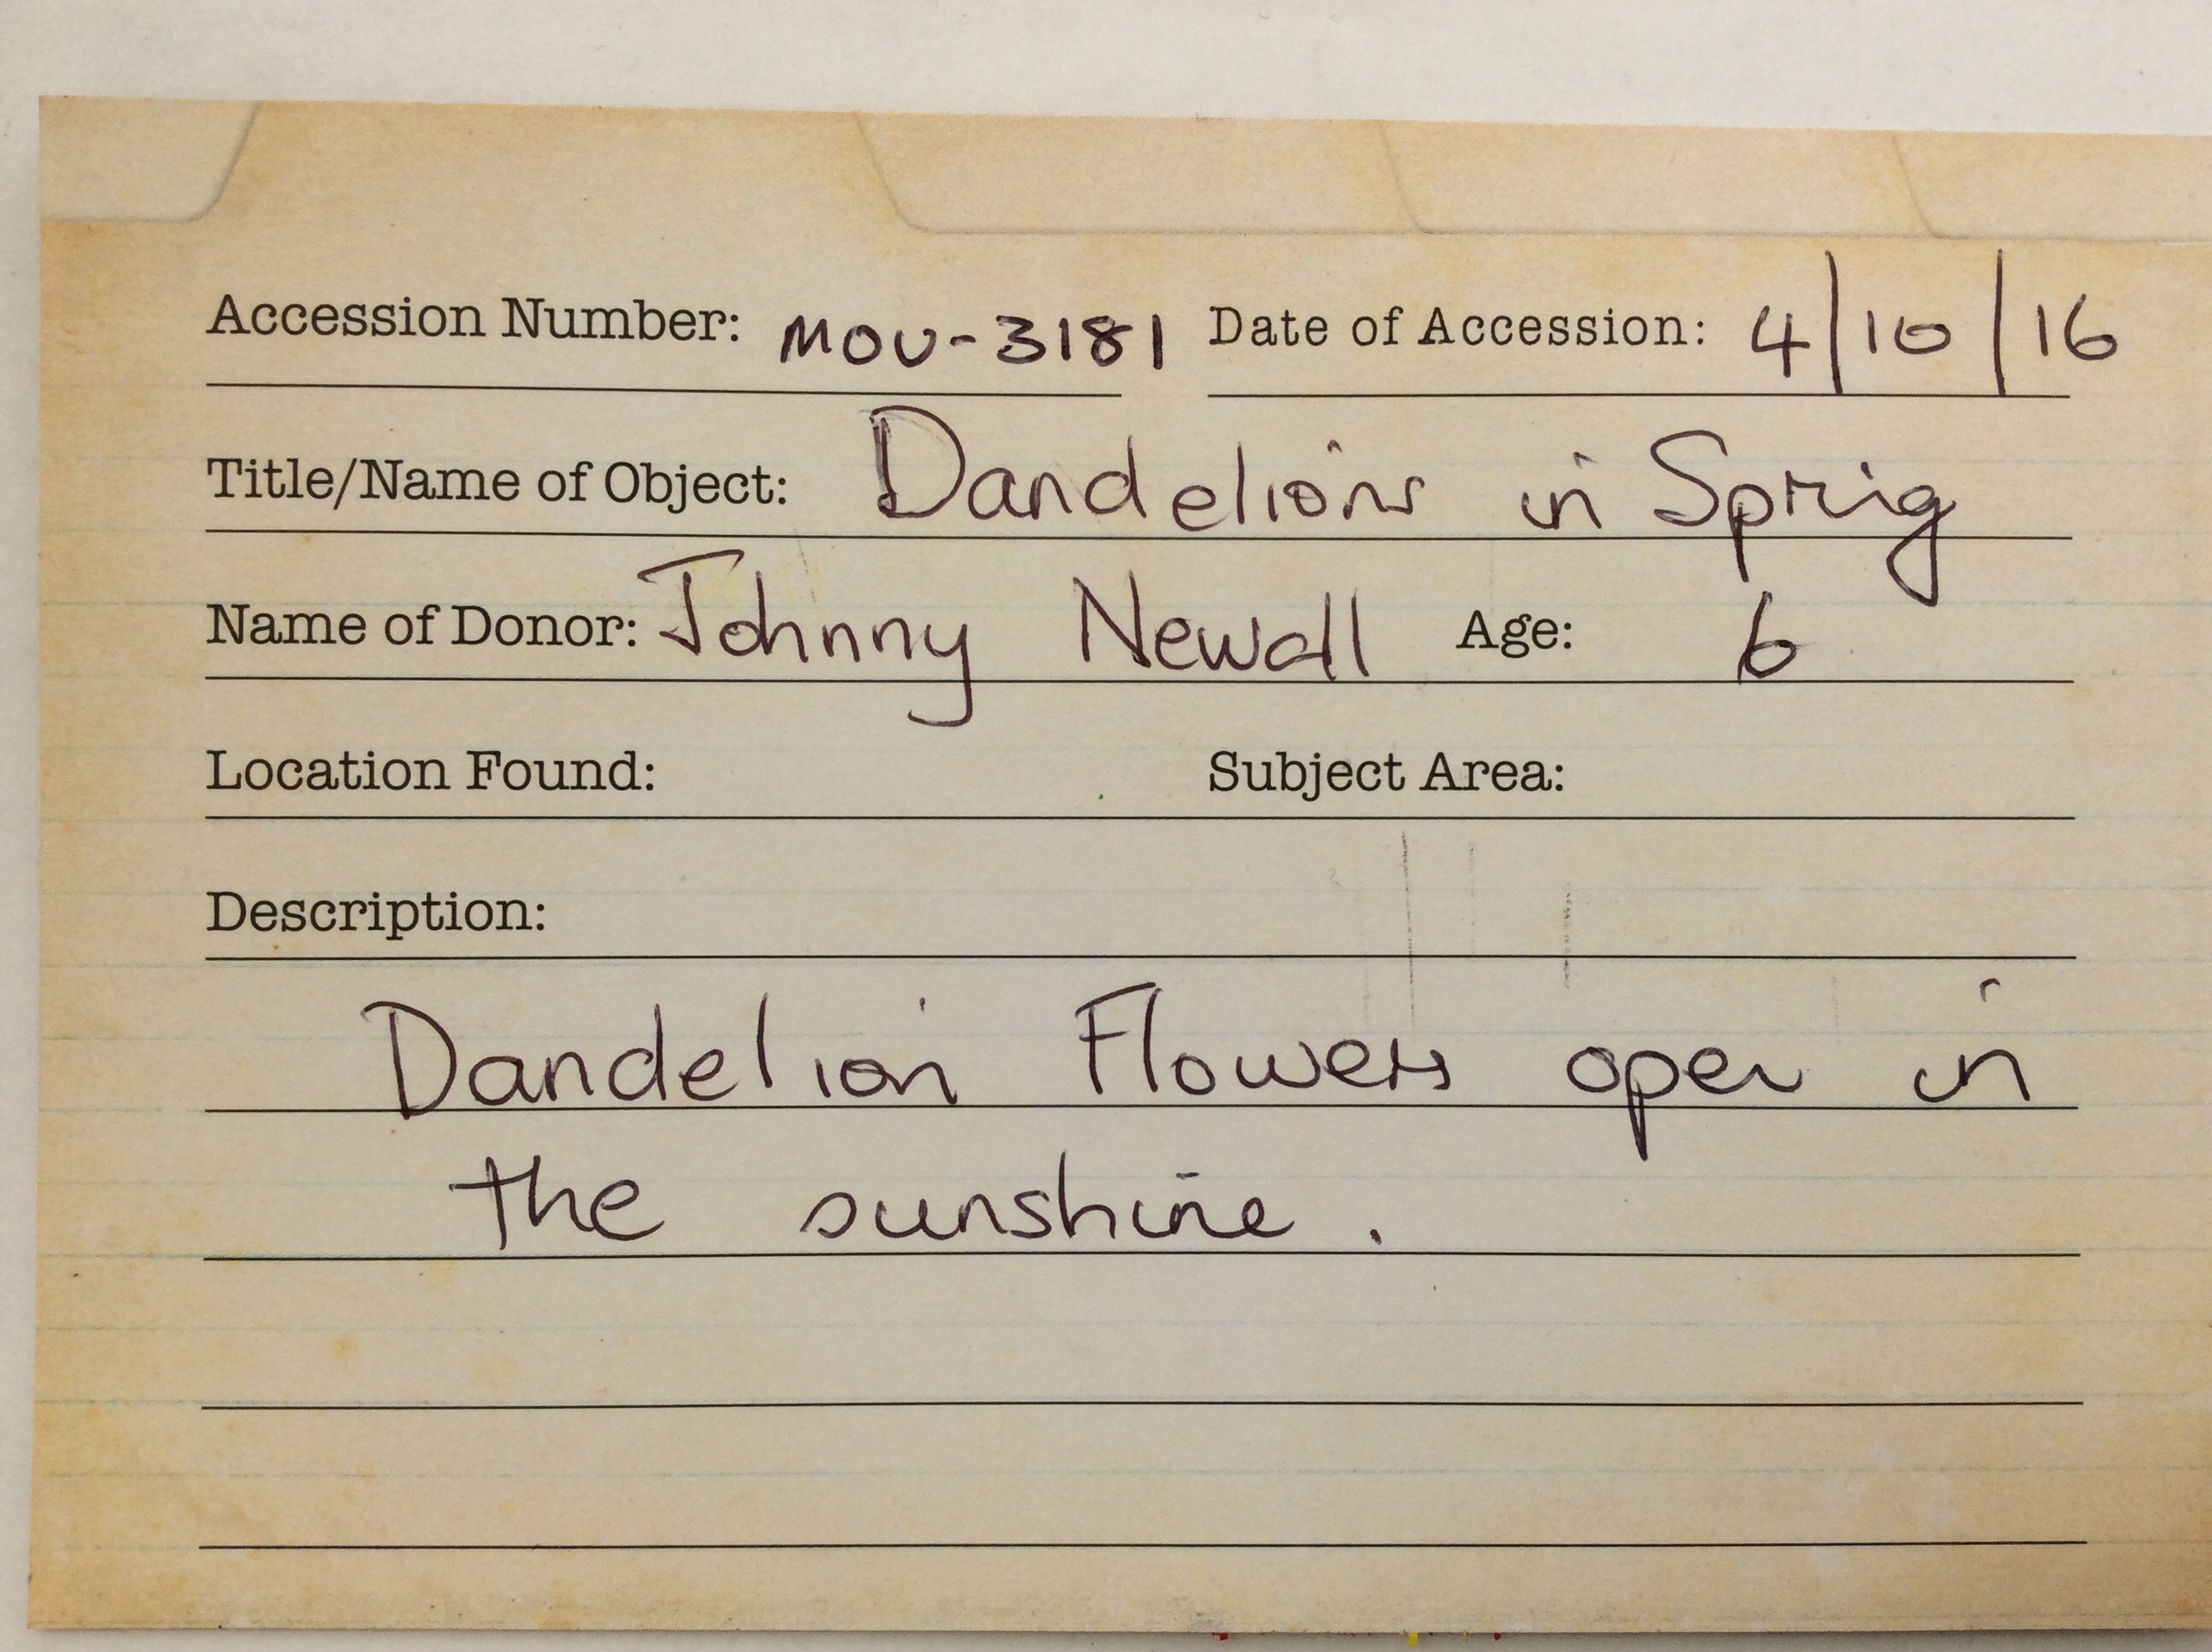 Accession Number: MOU-3181 Date of Accession: 4/10/16
Title/Name of Object: Dandelions in Sprig
Name of Donor: Johnny Newall Age: 6
Location Found: Subject Area:
Description:
Dandelion Flowers open in
the sunshine.